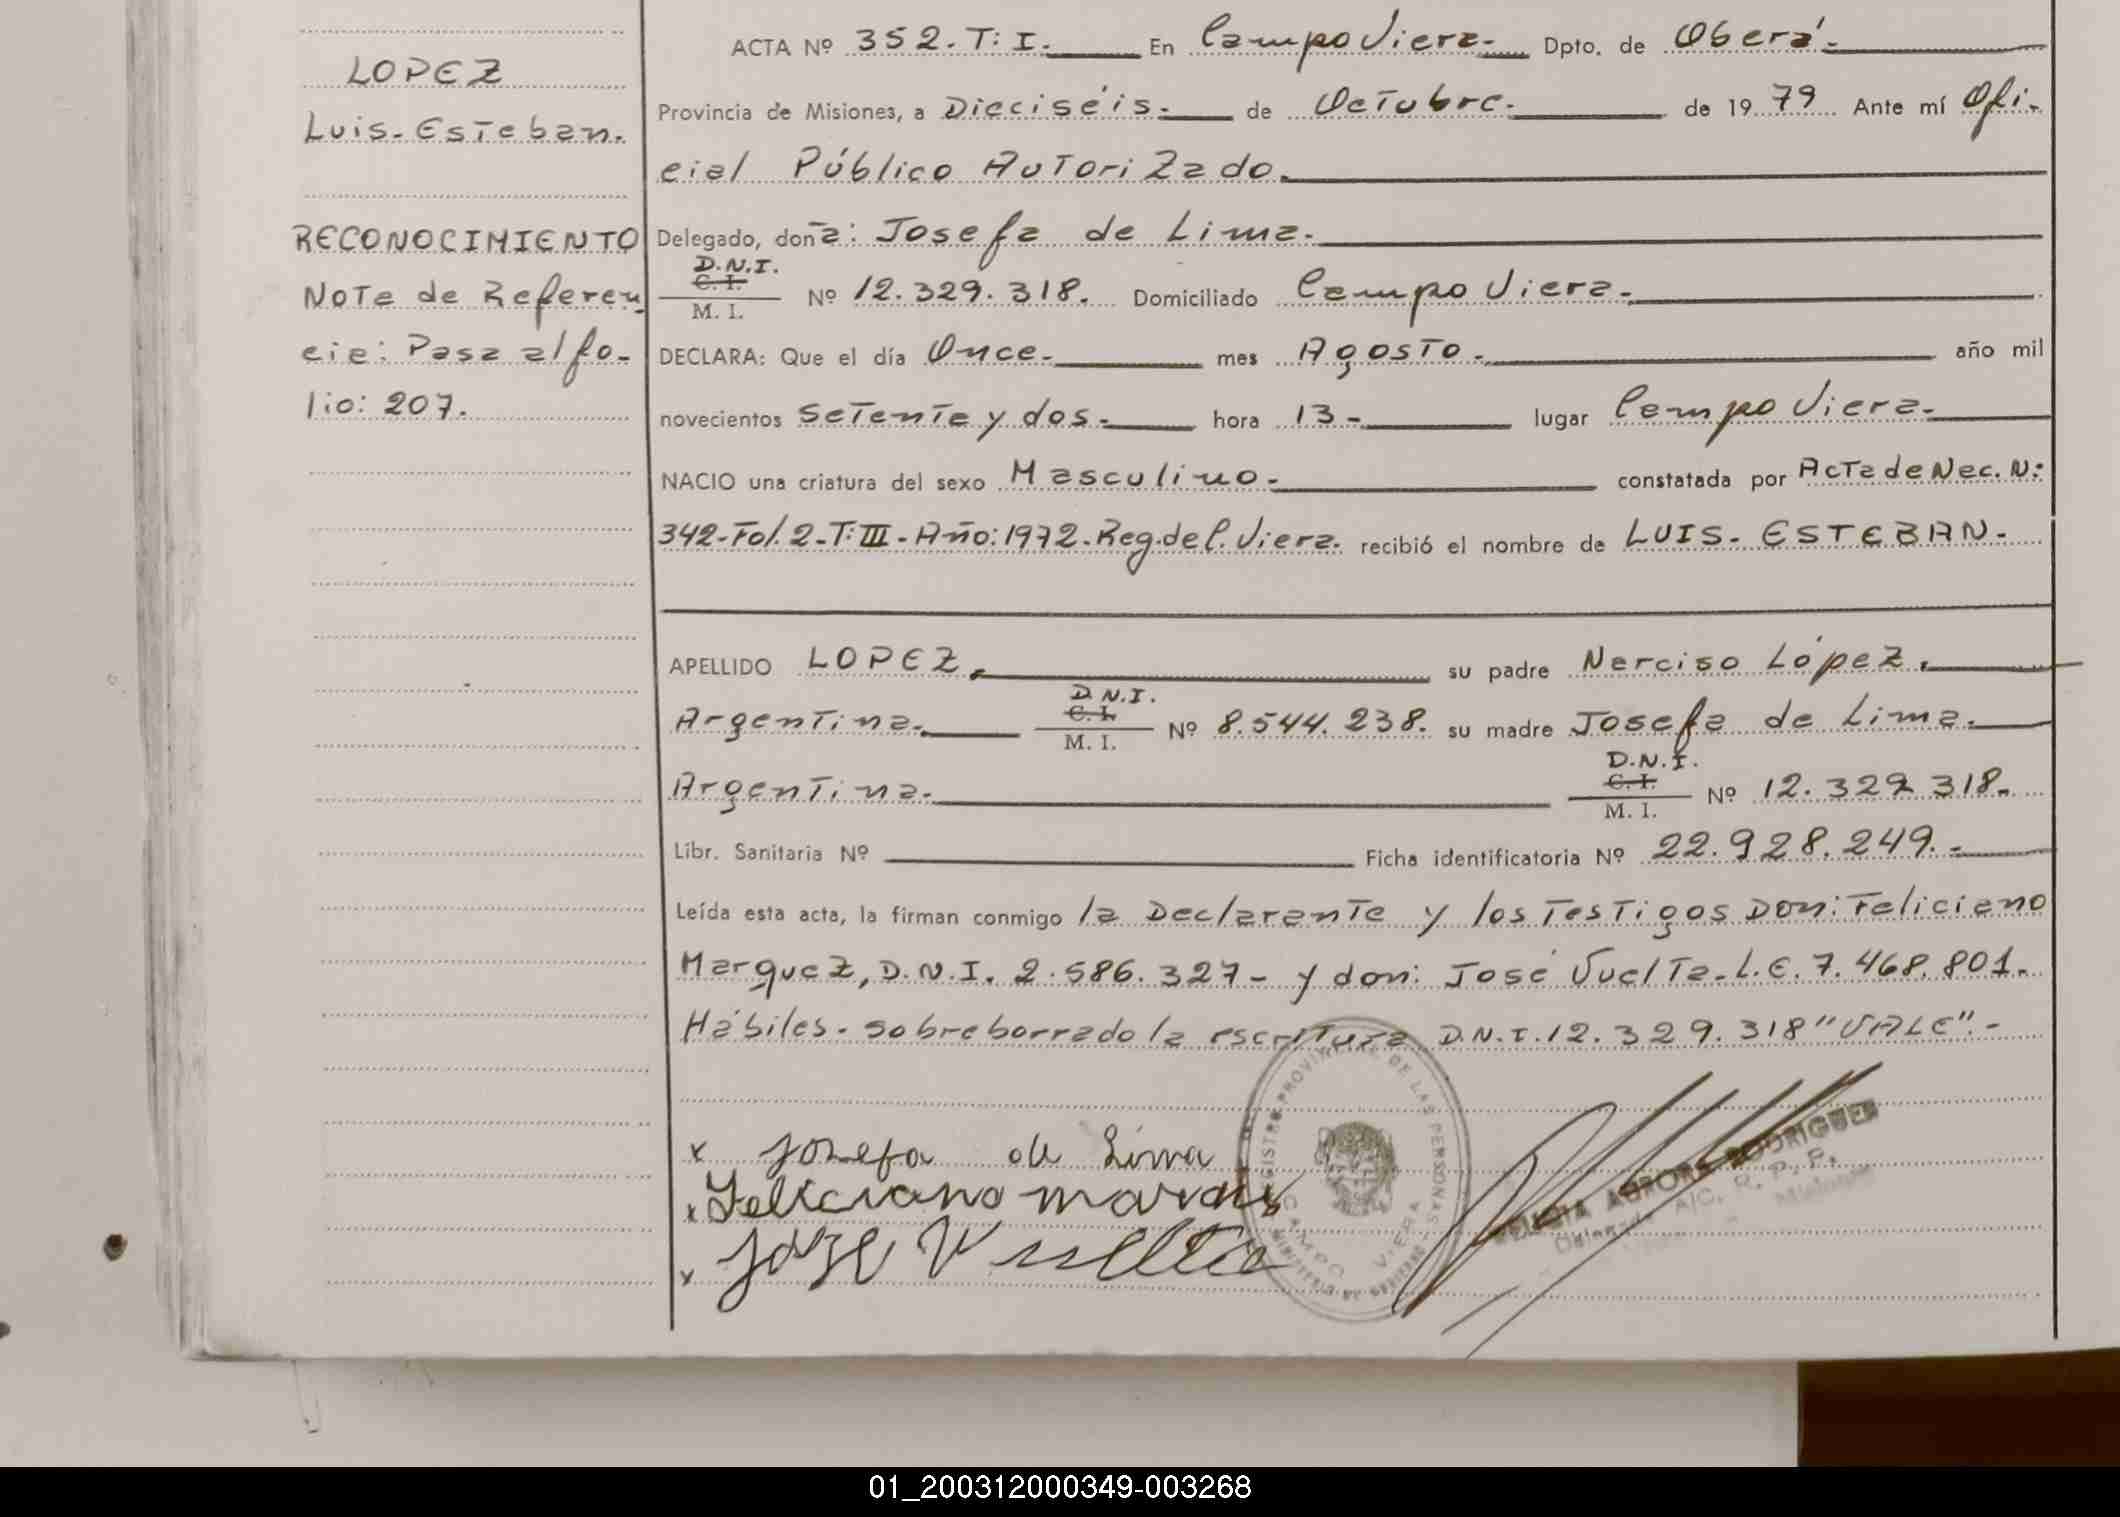 LOPEZ
Luis-Esteban.
RECONOCIMIENTO
Nota de Referen
cia: Pasa al fo-
lio: 207.
ACTA Nº 352.T:I. En Campo Viera. Dpto. de Oberá.
Provincia de Misiones, a Dieciséis. de Octubre. de 1979 Ante mí Ofi-
cial Público Autorizado.
Delegado, doña: Josefa de Lima.
D.N.I.
C. I.
M. I. Nº 12.329.318. Domiciliado Campo Viera.
DECLARA: Que el día Once. mes Agosto. año mil
novecientos Setenta y dos. hora 13- lugar Campo Viera.
NACIO una criatura del sexo Masculino. constatada por Acta de Nac. N:
342-Fol.2-T:III-Año:1972.Reg.de C.Viera. recibió el nombre de LUIS-ESTEBAN.
APELLIDO LOPEZ. su padre Narciso López.
D.N.I.
C. I.
Argentina. M. I. Nº 8.544.238. su madre Josefa de Lima.
D.N.I.
C. I.
Argentina. M. I. Nº 12.329.318.
Libr. Sanitaria Nº Ficha identificatoria Nº 22.928.249.-
Leída esta acta, la firman conmigo la Declarante y los Testigos Don: Feliciano
Marquez, D.N.I. 2.586.327- y don: José Vuelta-L.E.7.468.801.
Hábiles-sobreborrado la escritura D.N.I.12.329.318"VALE".-
x Josefa de Lima
x Feliciano
x Jose Vuelta
REGISTRO PROVINCIAL DE LAS PERSONAS
CAMPO VIERA
AURORA RODRIGUEZ
A/C. R. P. P.
Misiones
01_200312000349-003268